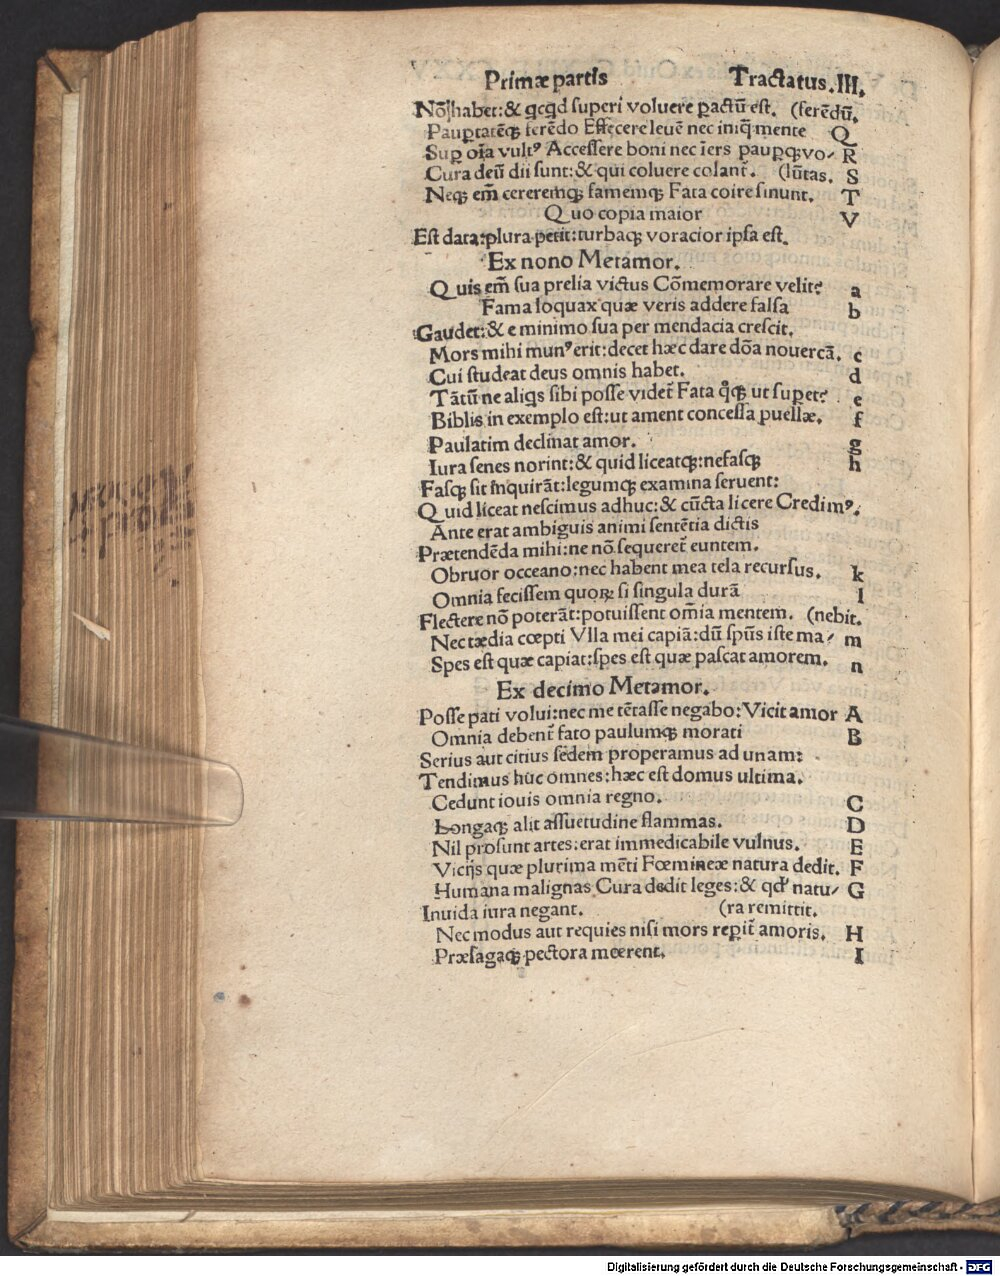 Primæ partis Tractatus.III.
Nõ habet:& qcqd superi voluere pactũ est. (ferẽdũ.
Paupertatẽqꝫ ferẽdo Effecere leuẽ nec iniq̃ mente Q
Sup oĩa vultꝰ Accessere boni nec ĩers paupqꝫ vo- R
Cura deũ dii sunt:& qui coluere colant̃. (lũtas. S
Neqꝫ em̃ cereremqꝫ famemqꝫ Fata coire sinunt. T
Quo copia maior V
Est data:plura petit:turbaqꝫ voracior ipsa est.
Ex nono Metamor.
Quis em̃ sua prelia victus Cõmemorare velit? a
Fama loquax quæ veris addere falsa b
Gaudet:& e minimo sua per mendacia crescit.
Mors mihi munꝰ erit:decet hæc dare dõa nouercã. c
Cui studeat deus omnis habet. d
Tãtũ ne aliqs sibi posse videt̃ Fata q̊qꝫ ut supet? e
Biblis in exemplo est:ut ament concessa puellæ. f
Paulatim declinat amor. g
Iura senes norint:& quid liceatqꝫ:nefasqꝫ h
Fasqꝫ sit inquirãt:legumqꝫ examina seruent:
Quid liceat nescimus adhuc:& cũcta licere Credimꝰ.
Ante erat ambiguis animi sentẽtia dictis
Prætendẽda mihi:ne nõ sequeret̃ euntem.
Obruor occeano:nec habent mea tela recursus. k
Omnia fecissem quoꝝ si singula durã l
Flectere nõ poterãt:potuissent om̃ia mentem. (nebit.
Nec tædia cœpti Vlla mei capiã:dũ spũs iste ma- m
Spes est quæ capiat:spes est quæ pascat amorem. n
Ex decimo Metamor.
Posse pati volui:nec me tẽtasse negabo:Vicit amor A
Omnia debent̃ fato paulumqꝫ morati B
Serius aut citius sedem properamus ad unam:
Tendimus huc omnes:hæc est domus ultima.
Cedunt iouis omnia regno. C
Longaqꝫ alit assuetudine flammas. D
Nil prosunt artes:erat immedicabile vulnus. E
Vicijs quæ plurima mẽti Fœmineæ natura dedit. F
Humana malignas Cura dedit leges:& qd̕ natu- G
Inuida iura negant. (ra remittit.
Nec modus aut requies nisi mors repit̃ amoris. H
Præsagaqꝫ pectora mœrent. I
Digitalisierung gefördert durch die Deutsche Forschungsgemeinschaft - DFG